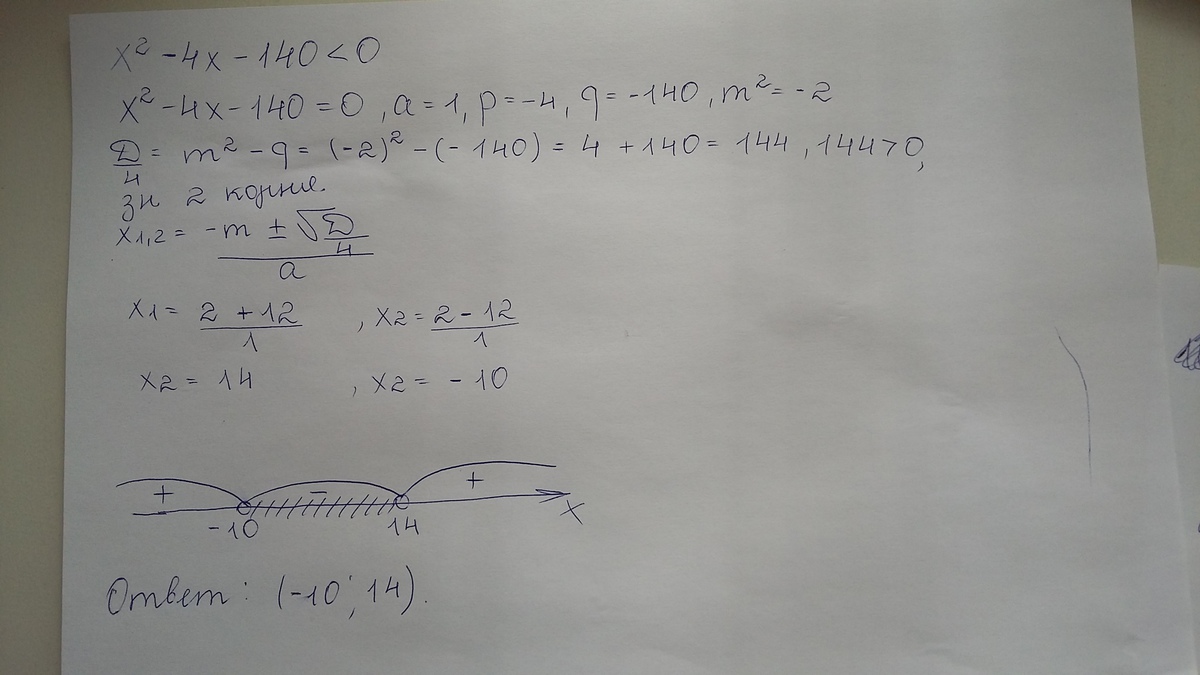 x² - 4x - 140 < 0
x² - 4x - 140 = 0 , a = 1, p = -4, q = -140, m² = -2
D/4 = m² - q = (-2)² - (- 140) = 4 + 140 = 144 , 144 > 0,
зн 2 корня.
x1,2 = (-m ± √(D/4))/a
x1 = (2 + 12)/1 , x2 = (2 - 12)/1
x2 = 14 , x2 = - 10
+ - +
-10 14 x
Ответ: (-10; 14).